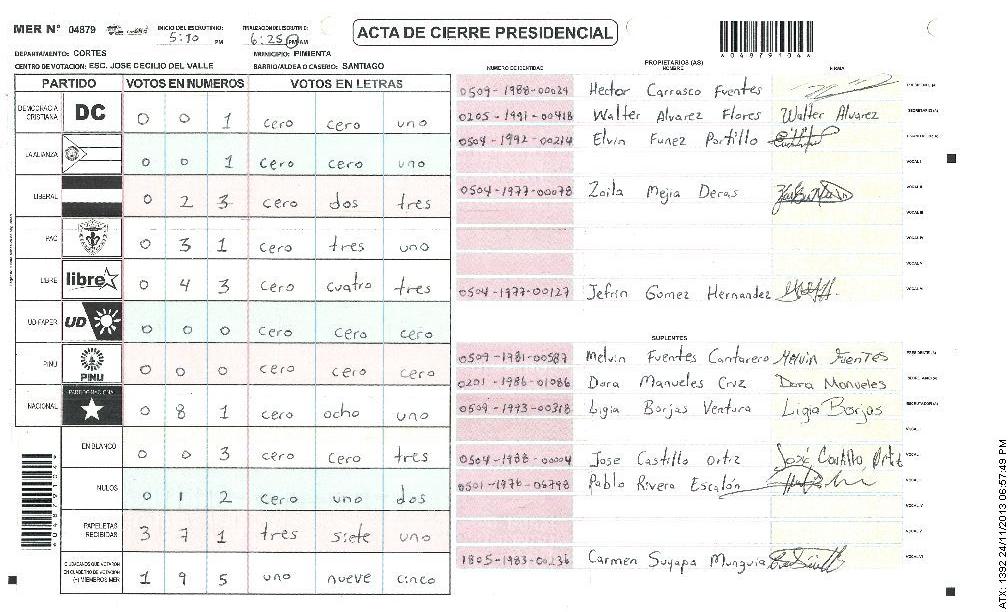 MER N° 04879 INICIO DEL ESCRUTINIO: 5:10 PM FINALIZACION DEL ESCRUTINIO: 6:25 PM AM
ACTA DE CIERRE PRESIDENCIAL
DEPARTAMENTO: CORTES MUNICIPIO: PIMIENTA
CENTRO DE VOTACION: ESC. JOSE CECILIO DEL VALLE BARRIO/ALDEA O CASERIO: SANTIAGO
PARTIDO VOTOS EN NUMEROS VOTOS EN LETRAS
DEMOCRACIA CRISTIANA DC 0 0 1 cero cero uno
LA ALIANZA 0 0 1 cero cero uno
LIBERAL 0 2 3 cero dos tres
PAC 0 3 1 cero tres uno
LIBRE libre 0 4 3 cero cuatro tres
UD FAPER UD 0 0 0 cero cero cero
PINU PINU 0 0 0 cero cero cero
NACIONAL 0 8 1 cero ocho uno
EN BLANCO 0 0 3 cero cero tres
NULOS 0 1 2 cero uno dos
PAPELETAS RECIBIDAS 3 7 1 tres siete uno
CIUDADANOS QUE VOTARON EN CUADERNO DE VOTACION (+) MIEMBROS MER 1 9 5 uno nueve cinco
NUMERO DE IDENTIDAD PROPIETARIOS (AS) NOMBRE FIRMA
0509-1988-00624 Hector Carrasco Fuentes
0205-1991-00418 Walter Alvarez Flores Walter Alvarez
0504-1992-00214 Elvin Funez Portillo
VOCAL I
0504-1977-00078 Zoila Mejia Deras VOCAL II
VOCAL III
VOCAL IV
VOCAL V
0504-1977-00127 Jefrin Gomez Hernandez
SUPLENTES
0509-1981-00587 Melvin Fuentes Cantarero Melvin Fuentes
0201-1986-01086 Dora Manueles Cruz Dora Manueles
0509-1993-00318 Ligia Borjas Ventura Ligia Borjas
0504-1988-00004 Jose Castillo Ortiz José Castillo Ortiz
0501-1976-06798 Pablo Rivera Escalón
1805-1983-00236 Carmen Suyapa Munguia
*04879104*
ATX: 1392 24/11/2013 06:57:49 PM